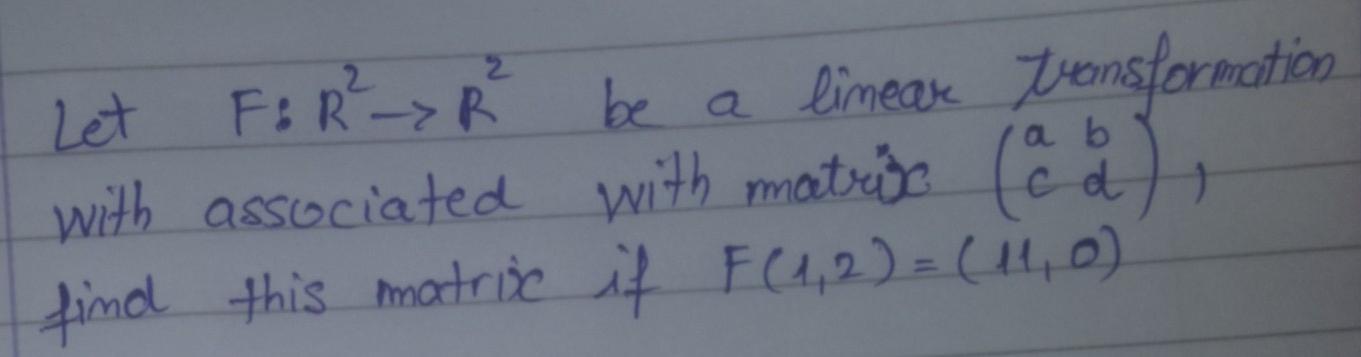 Let F: R² → R² be a linear transformation
with associated with matrix (a b
c d),
find this matrix if F(1,2) = (11,0)